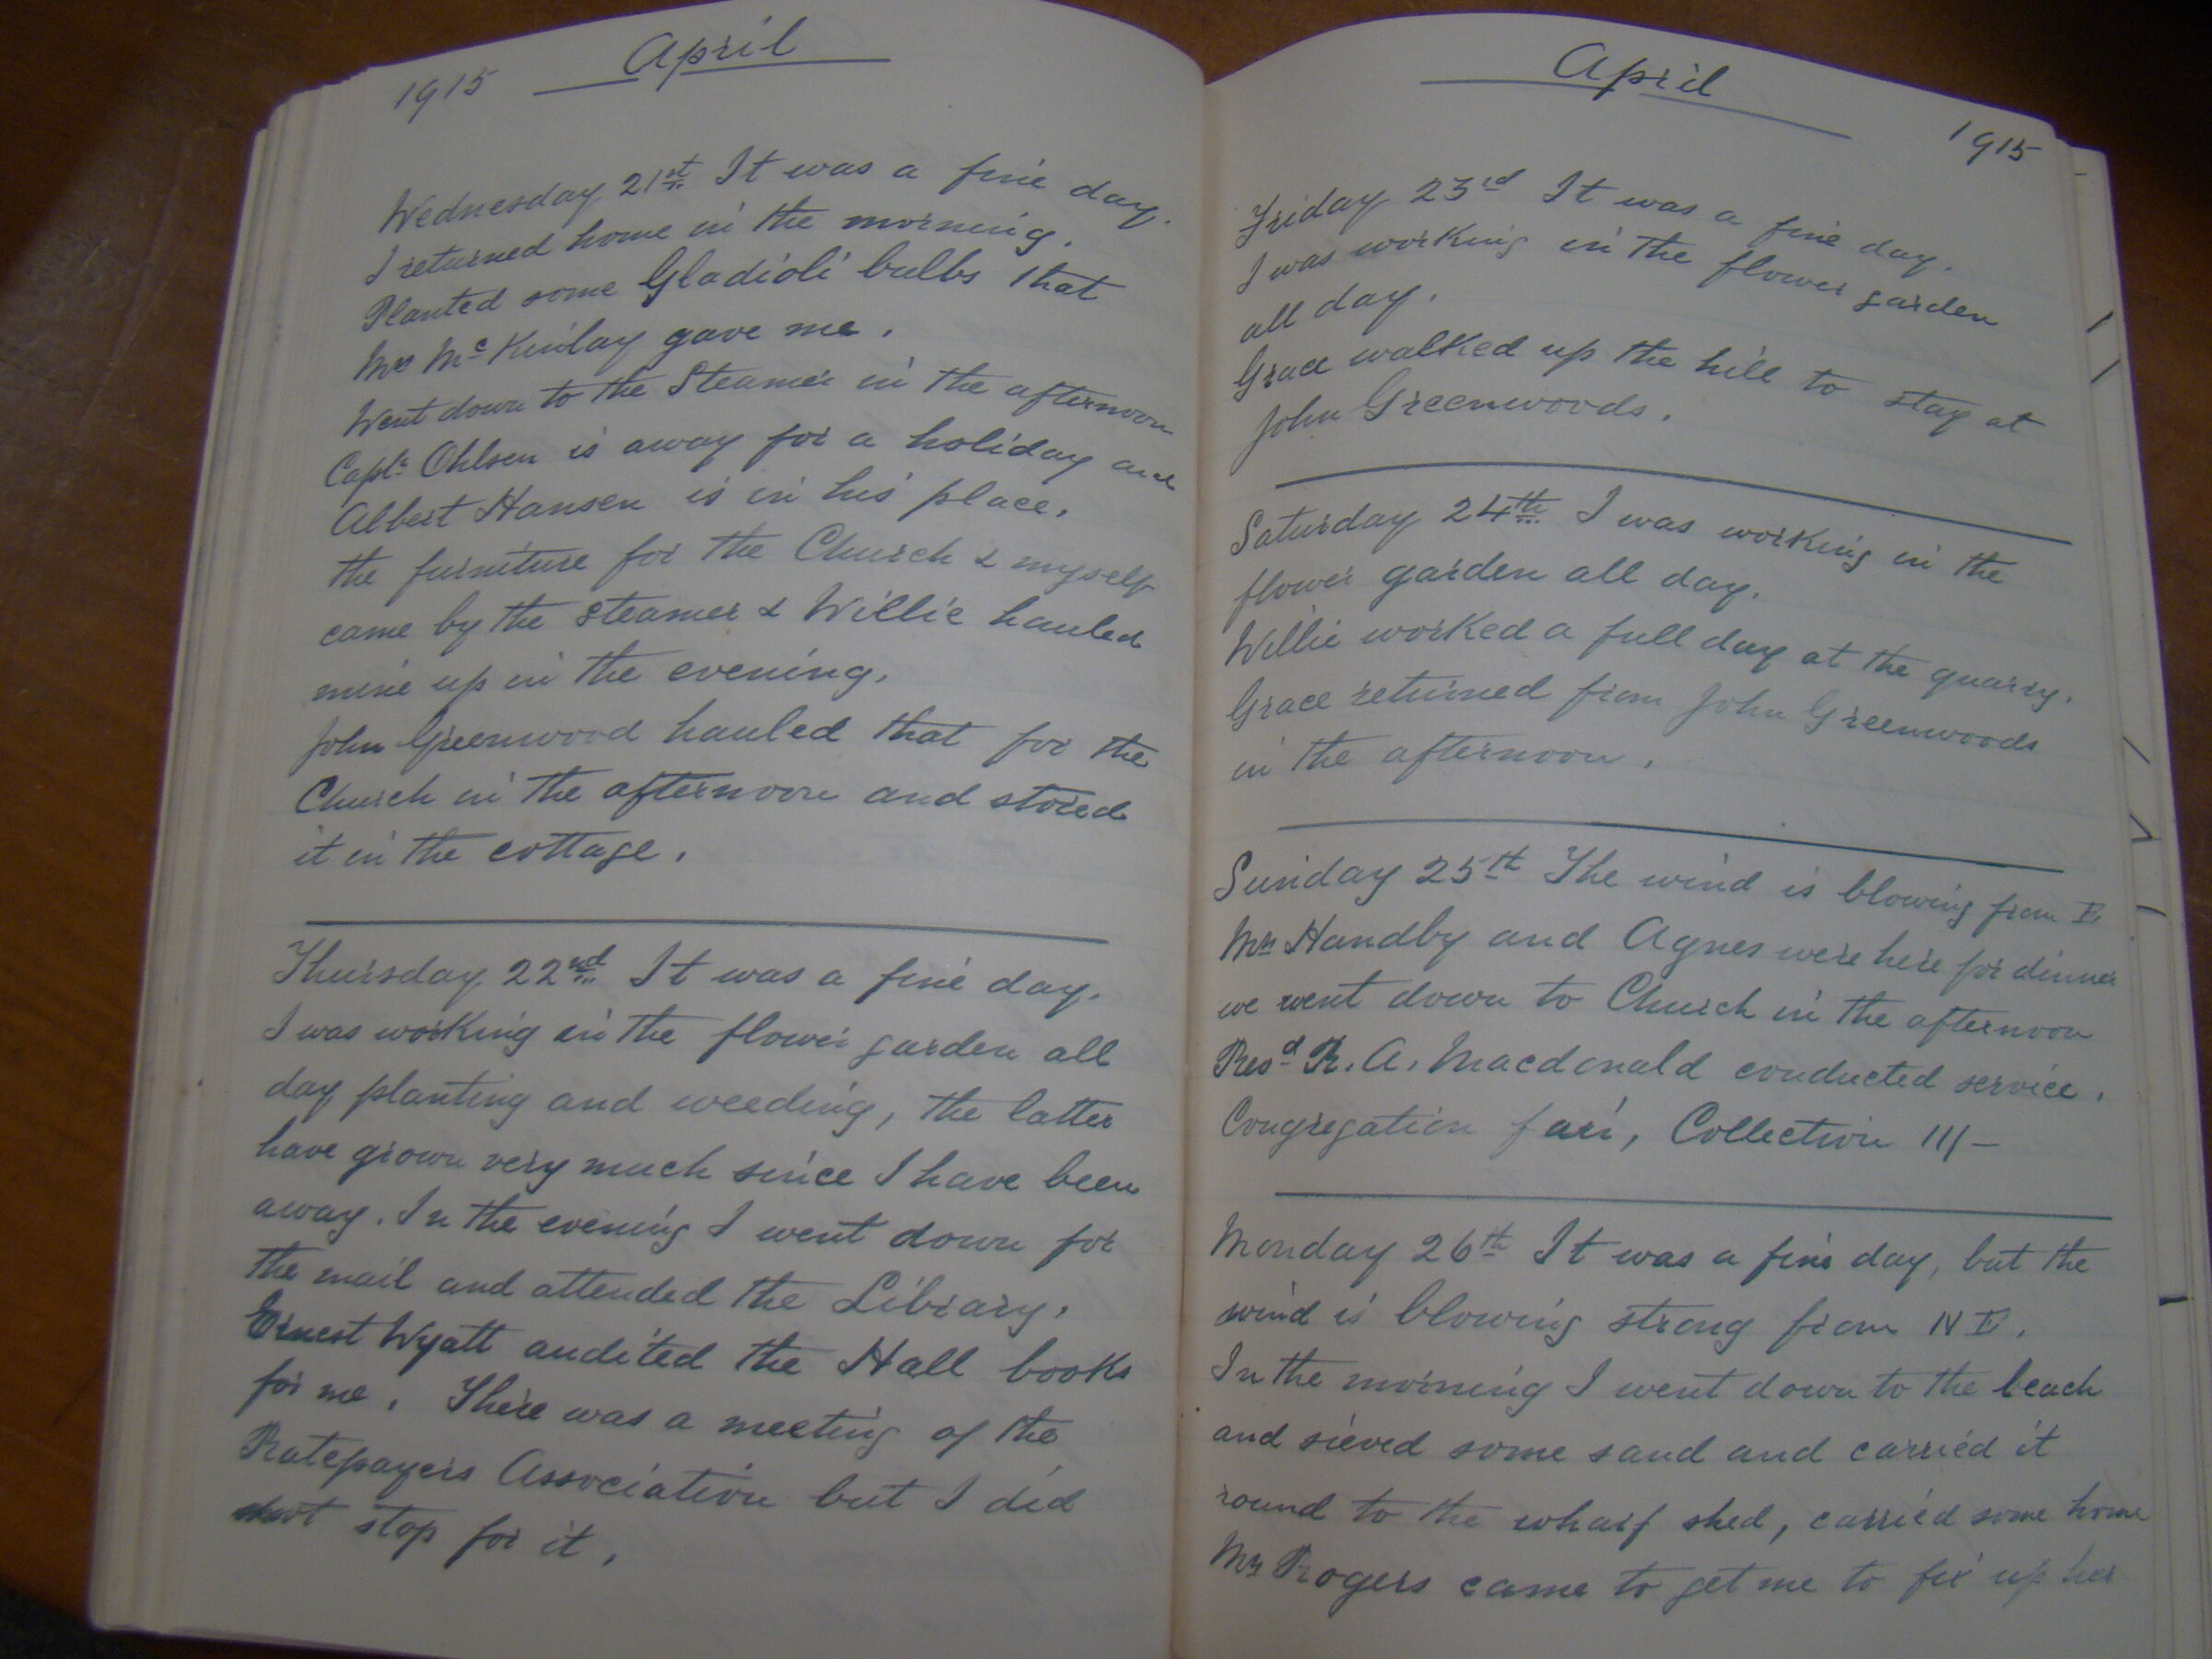 1915 April
Wednesday 21st It was a fine day.
I returned home in the morning.
Planted some Gladioli bulbs that
Mrs McKinlay gave me.
Went down to the Steamer in the afternoon
Capt. Ohlsen is away for a holiday and
Albert Hansen is in his place.
the furniture for the Church & myself
came by the steamer & Willie hauled
mine up in the evening.
John Greenwood hauled that for the
Church in the afternoon and stored
it in the cottage.
Thursday 22nd It was a fine day.
I was working in the flower garden all
day planting and weeding, the latter
have grown very much since I have been
away. In the evening I went down for
the mail and attended the Library.
Ernest Wyatt audited the Hall books
for me. There was a meeting of the
Ratepayers Association but I did
not stop for it.
April 1915
Friday 23rd It was a fine day.
I was working in the flower garden
all day.
Grace walked up the hill to stay at
John Greenwoods.
Saturday 24th I was working in the
flower garden all day.
Willie worked a full day at the quarry.
Grace returned from John Greenwoods
in the afternoon.
Sunday 25th The wind is blowing from E
Mrs Handby and Agnes were here for dinner
we went down to Church in the afternoon
Revd R. A. Macdonald conducted service.
Congregation fair, Collection 11/-
Monday 26th It was a fine day, but the
wind is blowing strong from N E.
In the morning I went down to the beach
and sieved some sand and carried it
round to the wharf shed, carried some home
Mrs Rogers came to get me to fix up her